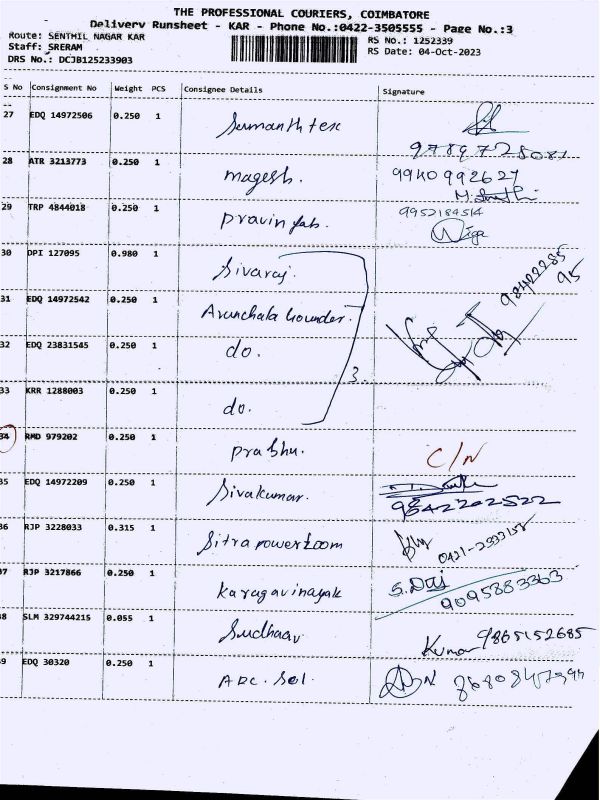 THE PROFESSIONAL COURIERS, COIMBATORE
Delivery Runsheet - KAR - Phone No.:0422-3505555 - Page No.:3
Route: SENTHIL NAGAR KAR
Staff: SRERAM
DRS No.: DCJB125233903
RS No.: 1252339
RS Date: 04-Oct-2023
S No Consignment No Weight PCS Consignee Details Signature
27 EDQ 14972506 0.250 1 Sumanth tex
9789728081
28 ATR 3213773 0.250 1 magesh. 9940992627
29 TRP 4844018 0.250 1 Pravin fab. 9952184514
30 DPI 127095 0.980 1 Sivaraj.
31 EDQ 14972542 0.250 1 Arunchala Gounder. 98422285
95
32 EDQ 23831545 0.250 1 do.
3.
33 KRR 1288003 0.250 1 do.
34 RMD 979202 0.250 1 Prabhu. C/N
35 EDQ 14972209 0.250 1 Sivakumar.
9842202522
36 RJP 3228033 0.315 1 Sitra powerloom
37 RJP 3217866 0.250 1 Karagavinayak S. Das
9095883363
38 SLM 329744215 0.055 1 Kumar 9865152685
39 EDQ 30320 0.250 1 ADC. Sol.